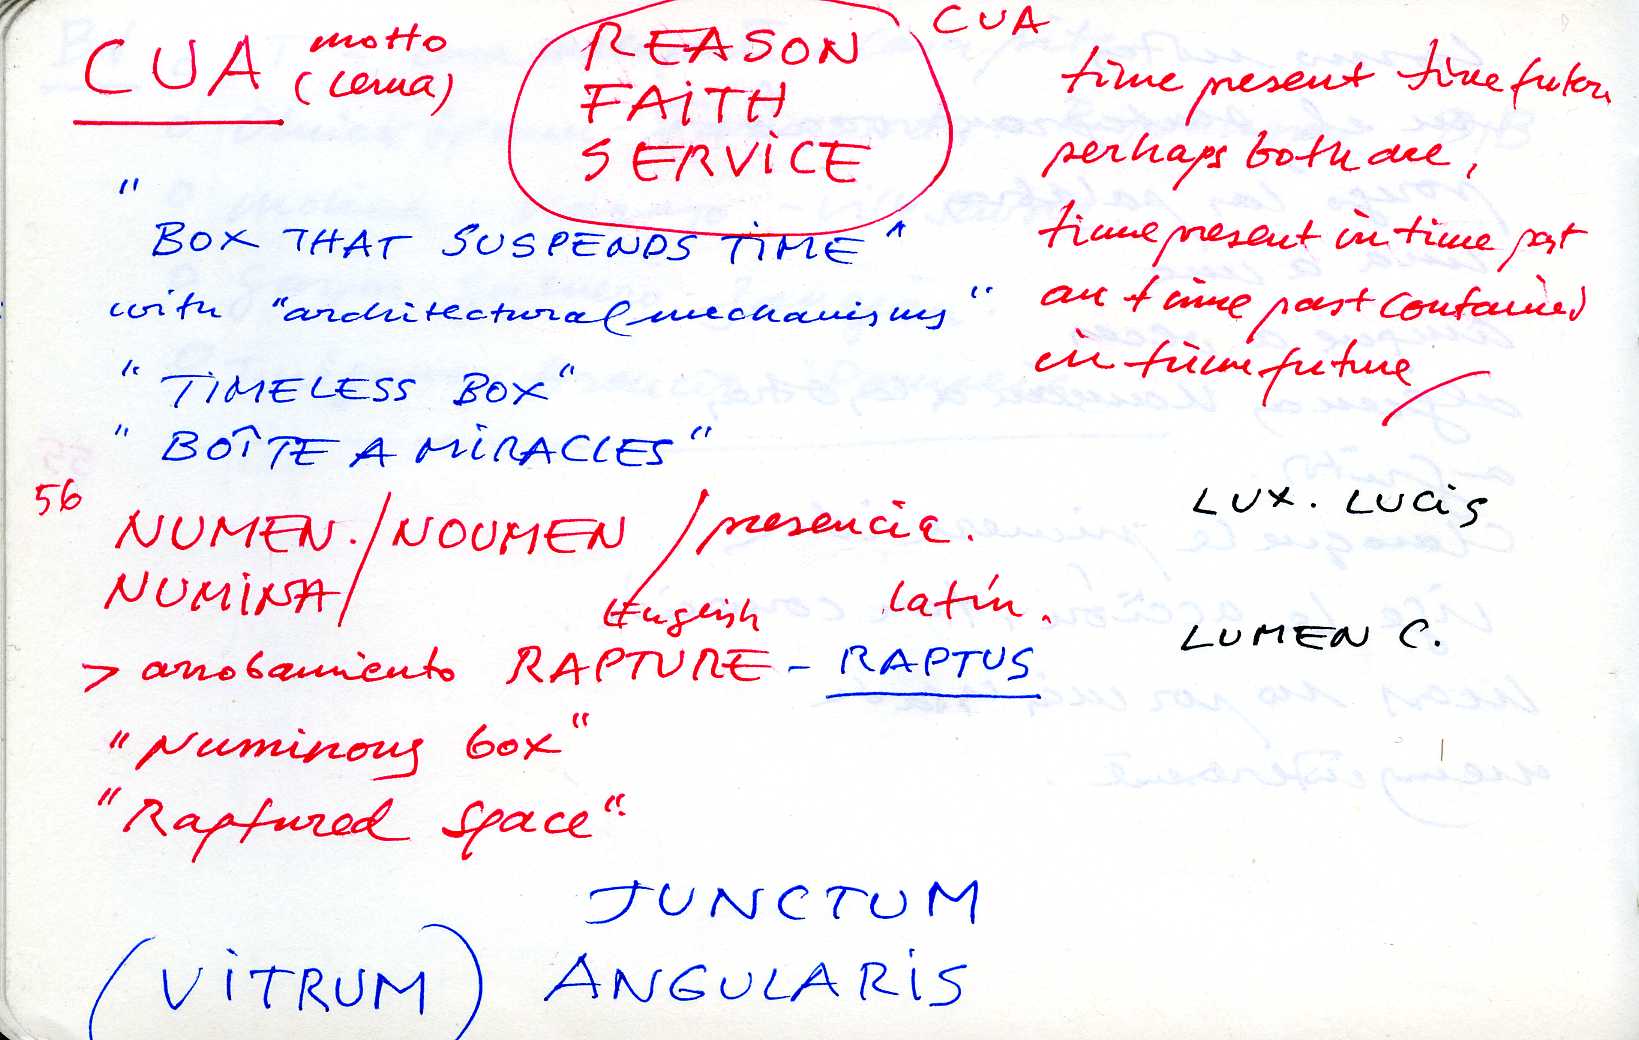 CUA motto
(lema)
REASON
FAITH
SERVICE
CUA
time present time future
perhaps both are,
time present in time past
an time past contained
in time future
"
BOX THAT SUSPENDS TIME"
with "architectural mechanisms"
"TIMELESS BOX"
"BOÎTE A MIRACLES"
56
NUMEN. / NOUMEN / presencia.
NUMINA /
English latín.
> arrobamiento RAPTURE - RAPTUS
"Numinous box"
"Raptured space"
LUX. LUCIS
LUMEN C.
JUNCTUM
(VITRUM) ANGULARIS